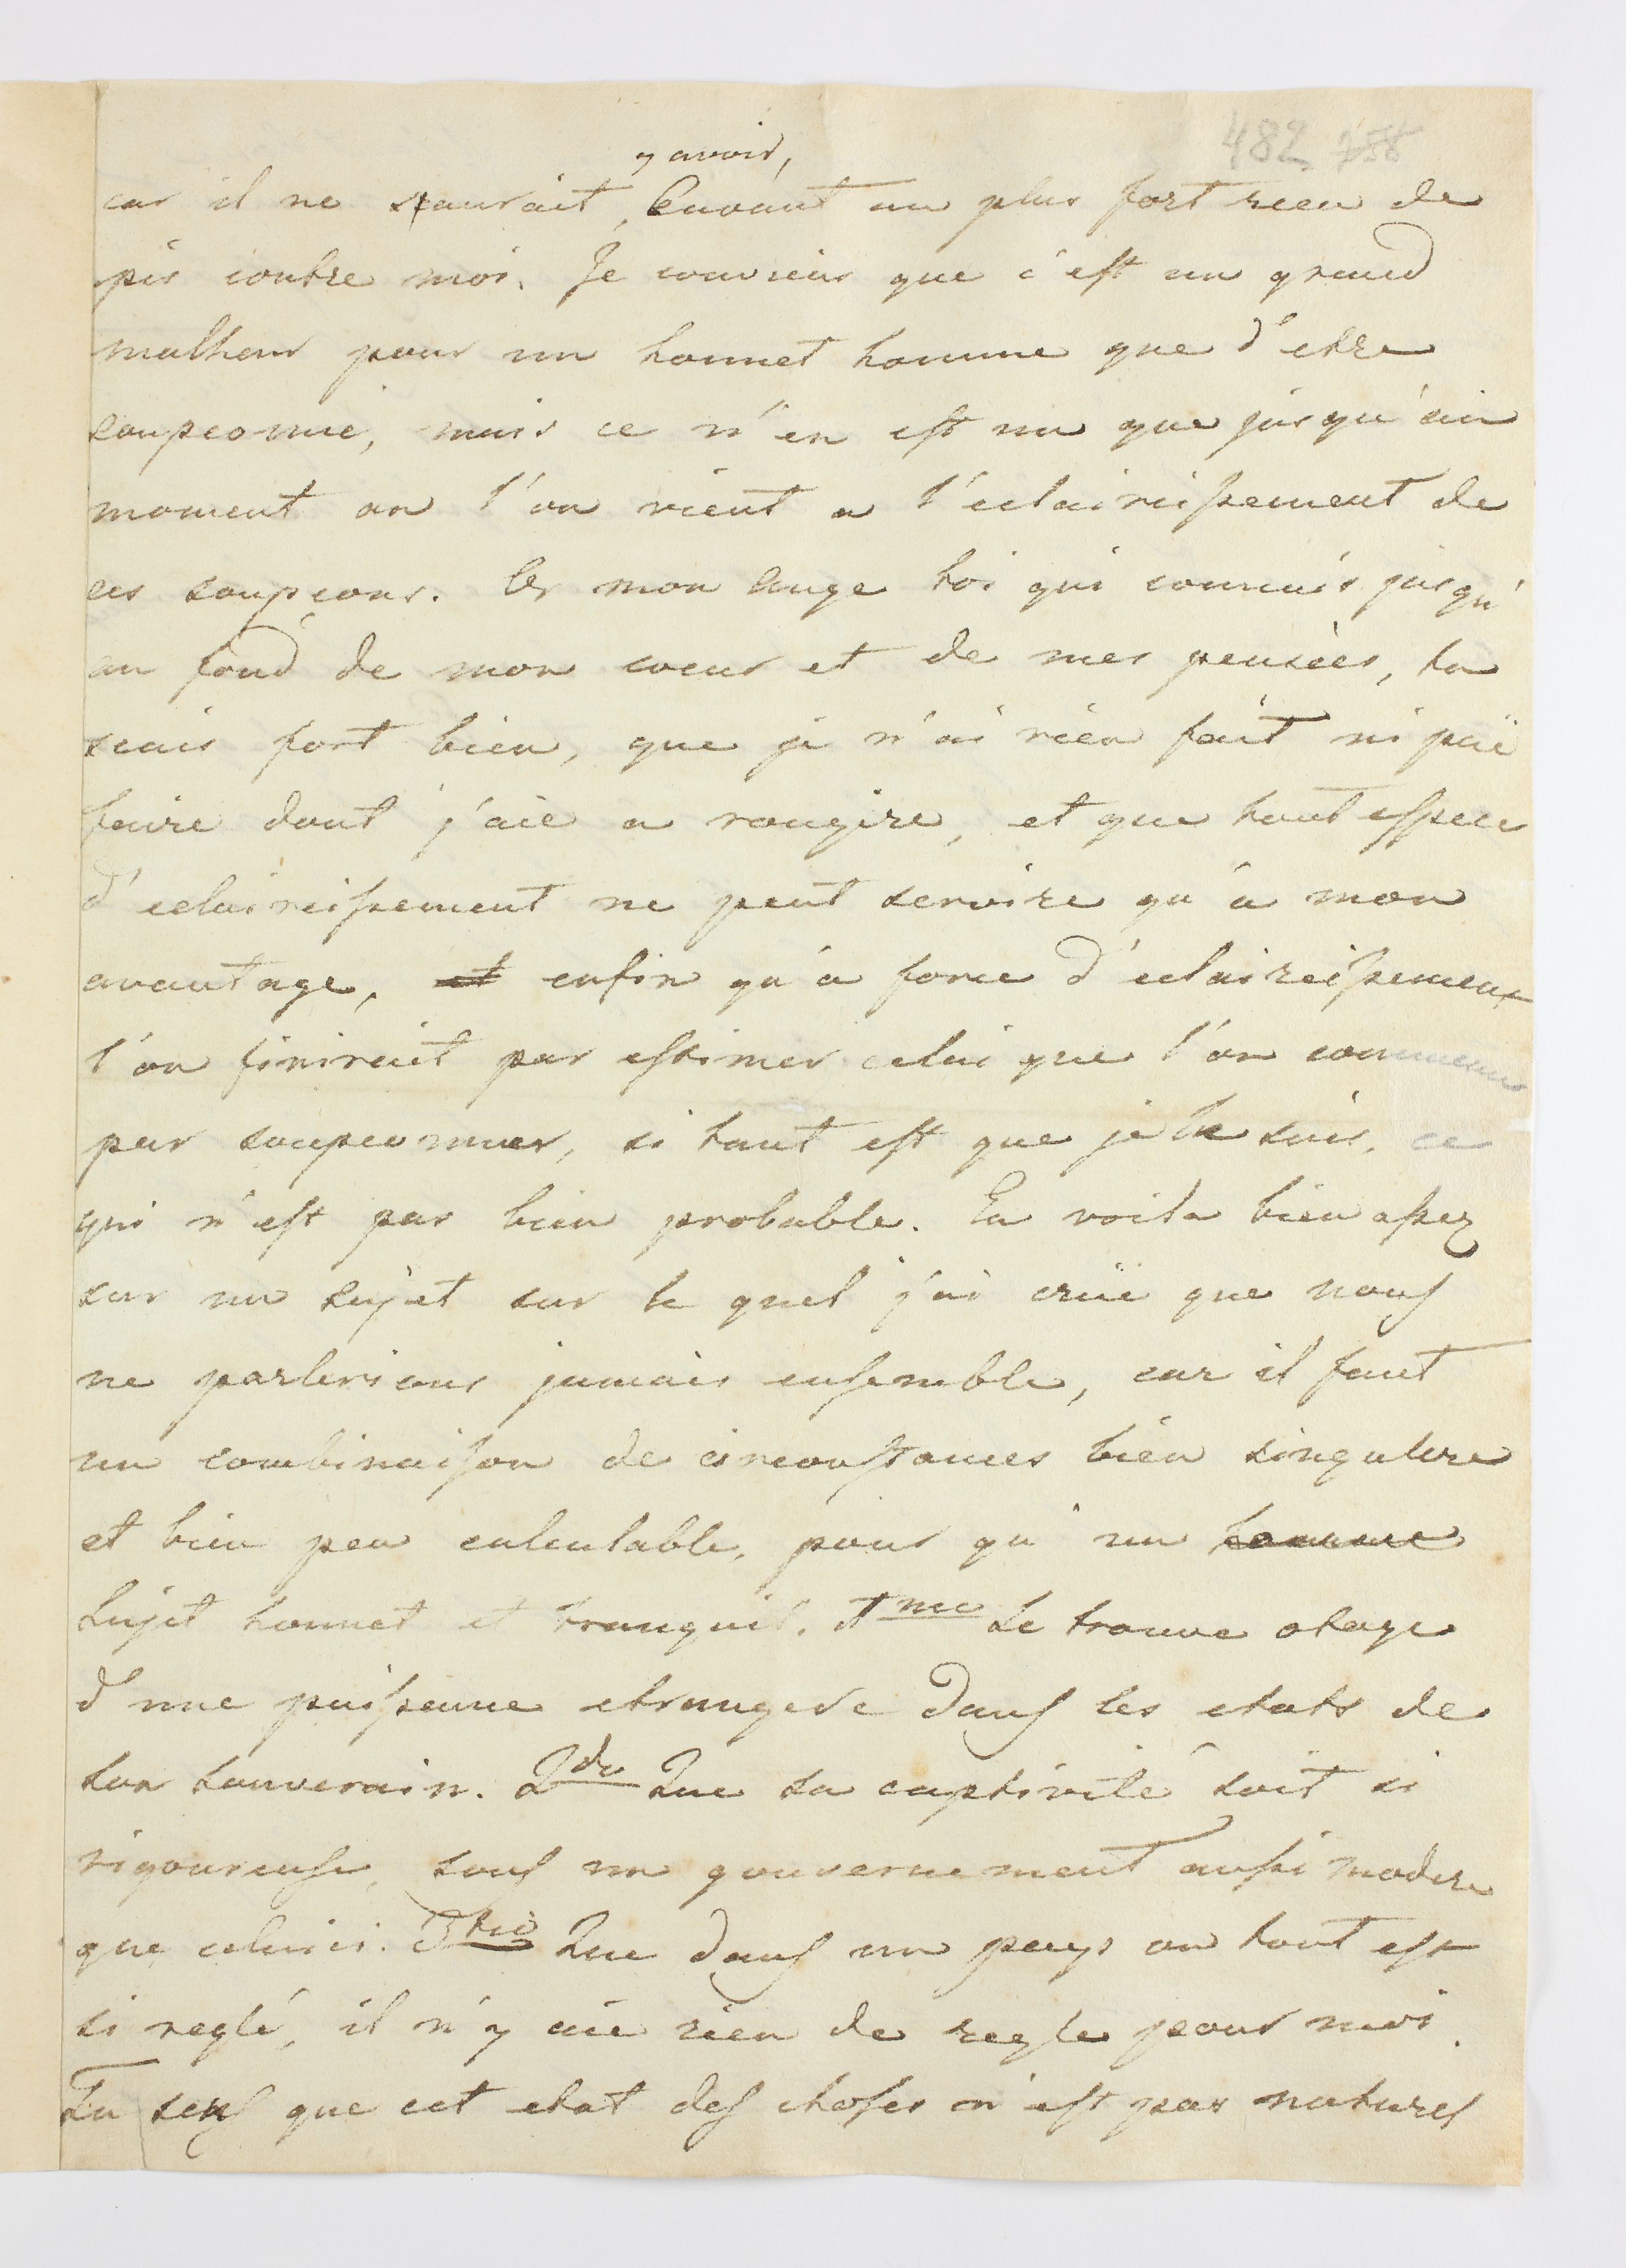 482
y avoir,
car il ne sçaurait, Cuvant au plus fort rien de
pis contre moi. Je conviens que c'est un grand
malheur pour un honnet homme que d'etre
soupconné, mais ce n'en est un que jusqu'au
moment ou l'on vient a l'eclaircissement de
ces soupçons. Or mon Ange toi qui connais jusqu'
au fond de mon coeur et de mes pensèes, tu
scais fort bien, que je n'ai rien fait ni pue
faire dont j'aie a rougire, et que tout espece
d'eclaircissement ne peut servire qu'à mon
avantage, et enfin qu'a force d'eclaircissement
l'on finirait par estimer celui que l'on commence
par soupconner, si tant est que je le suis, ce
qui n'est pas bien probable. En voila bien assez
sur un sujet sur le quel j'ai crüe que nous
ne parlerions jamais ensemble, car il faut
un combinaison de circonstances bien singulere
et bien peu calculable, pour qu'un homme
sujet honnet et tranquil. 1me Se trouve otage
d'une puissance etrangere dans les etats de
son souverain. 2do Que sa captivité soit si
rigoureuse, sous un gouvernement aussi modere
que celuici. 3tio Que dans un pays ou tout est
si reglé, il n'y aie rien de regle pour moi.
Tu sens que cet etat des choses n'est pas naturel